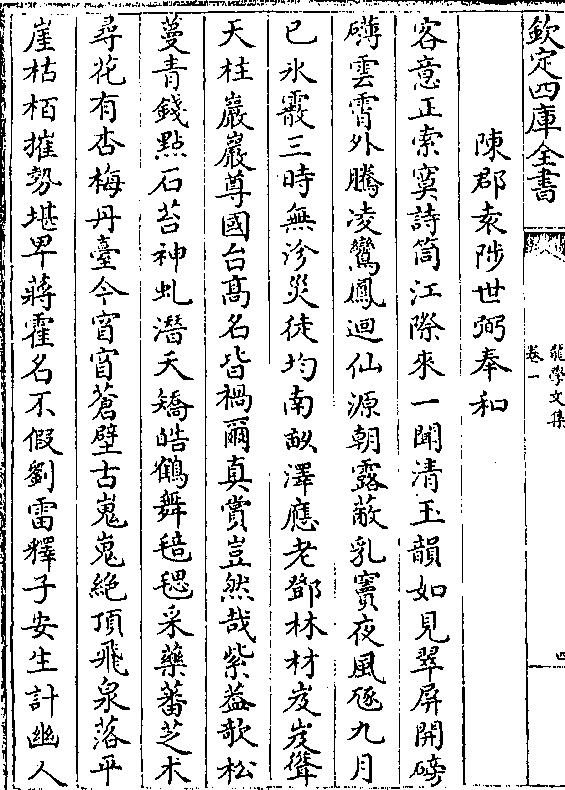 欽定四庫全書
龍學文集
卷一
四
陳郡袁陟世弼奉和
客意正索寞詩筒江際來一聞清玉韻如見翠屏開磅
礴雲霄外騰凌鸞鳳迴仙源朝露蔽乳竇夜風豗九月
已氷霰三時無沴災徒均南畝澤應老鄧林材岌岌聳
天柱巖巖尊國台髙名皆禍爾真賞豈然哉紫葢歌松
蔓青錢點石苔神虬潛夭矯皓鶴舞毰毸采藥蕃芝术
尋花有杏梅丹臺今窅窅蒼壁古嵬嵬絶頂飛泉落平
崖枯栢摧勢堪卑蔣霍名不假劉雷釋子安生計幽人